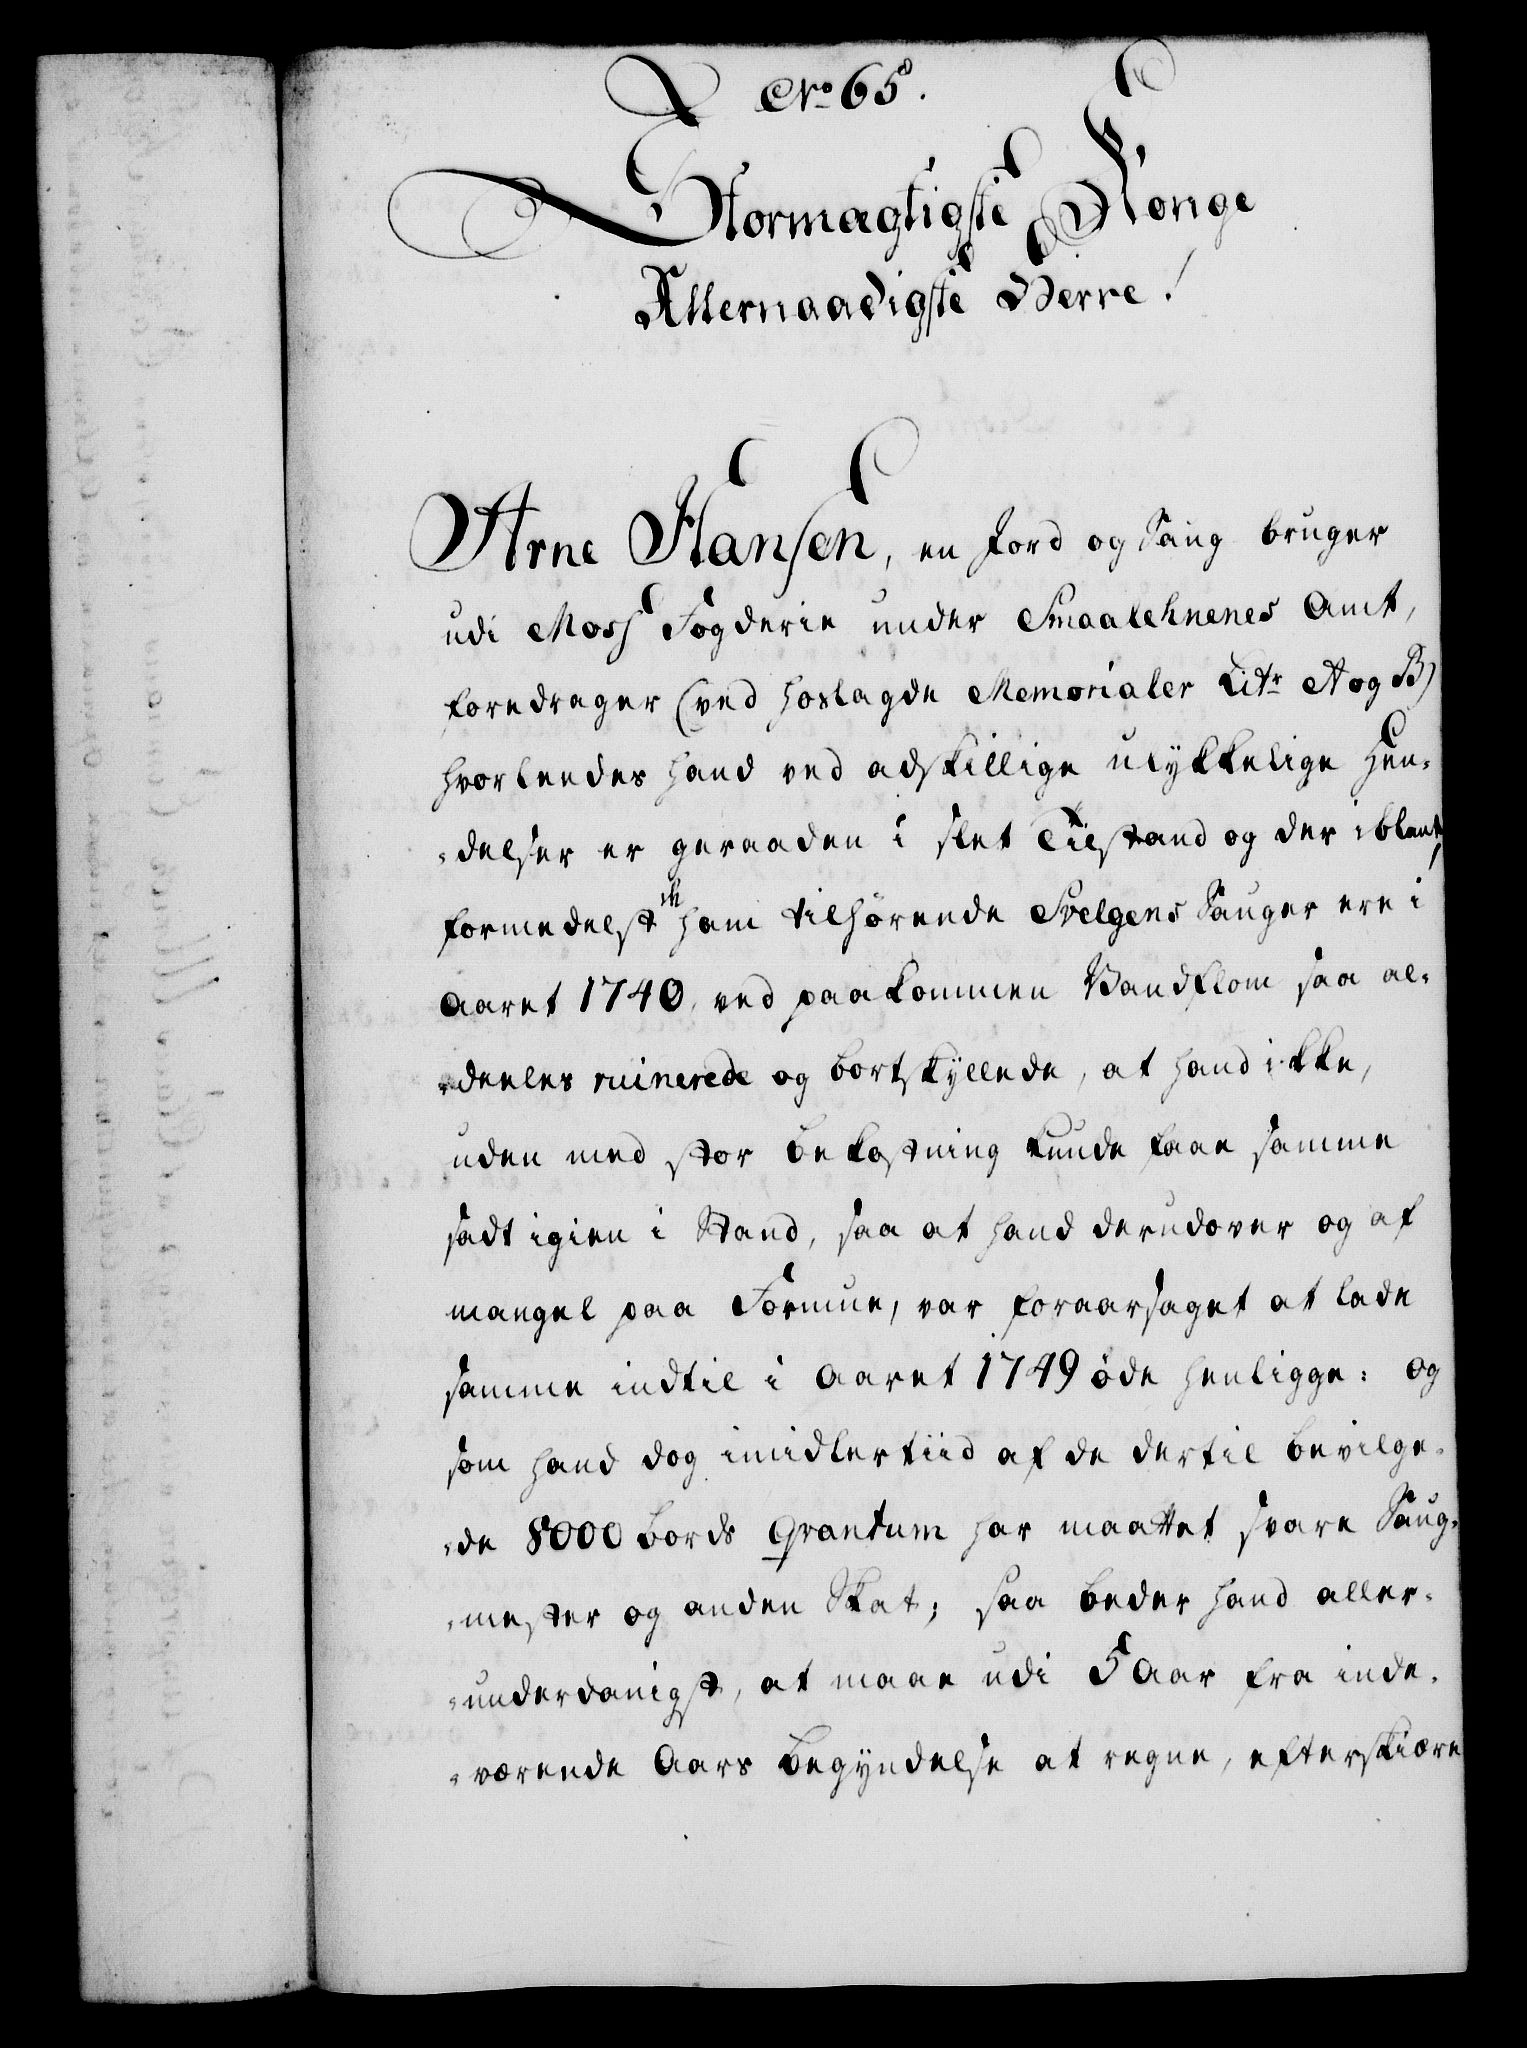 No 65.
Stormægtigste Konge
Allernaadigste Herre!
Arne Hansen, en Jord og Saug bruger
udi Moss Fogderie under Smaalehnenes Amt,
foredrager (ved hoslagde Memorialer Litr A og B)
hvorleedes hand ved adskillige ulykkelige Hen-
-delser er geraaden i slet Tilstand og der iblant,
formedelst de ham tilhørende Svelgens Sauger ere i
Aaret 1740, ved paakommen Vandflom saa al-
-deeles ruinerede og bortskyllede, at hand ikke,
uden med stor Bekostning kunde faae samme
sadt igien i Stand, saa at hand derudover og af
mangel paa Formue, var foraarsaget at lade
samme indtil i Aaret 1749 øde henligge: Og
som hand dog imidlertiid af de dertil bevilge-
-de 8000 Bords Qvantum har maattet svare Saug-
-mester og anden Skat; saa beder hand aller-
-underdanigst, at maae udi 5 Aar fra inde-
-værende Aars Begyndelse at regne, efterskiære